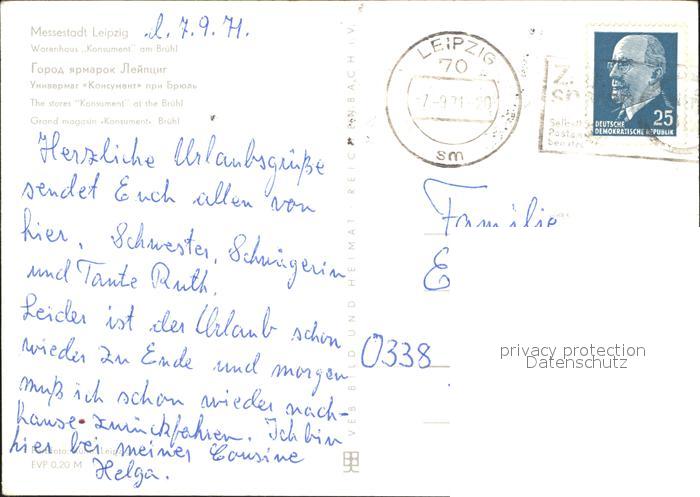 Messestadt Leipzig
Warenhaus „Konsument" am Brühl
Город ярмарок Лейпциг
Универмаг «Консумент» при Брюль
The stores "Konsument" at the Brühl
Grand magasin «Konsument» Brühl
d. 7.9.71.
Herzliche Urlaubsgrüße
sendet Euch allen von
hier, Schwester, Schwägerin
und Tante Ruth.
Leider ist der Urlaub schon
wieder zu Ende und morgen
muß ich schon wieder nach-
hause zurückfahren. Ich bin
hier bei meiner Cousine
Helga.
EVP 0,20 M
VEB BILD UND HEIMAT REICHENBACH I. V.
LEIPZIG
70
7.-9.71-20
sm
25
DEUTSCHE
DEMOKRATISCHE REPUBLIK
Familie
E
0338
privacy protection
Datenschutz